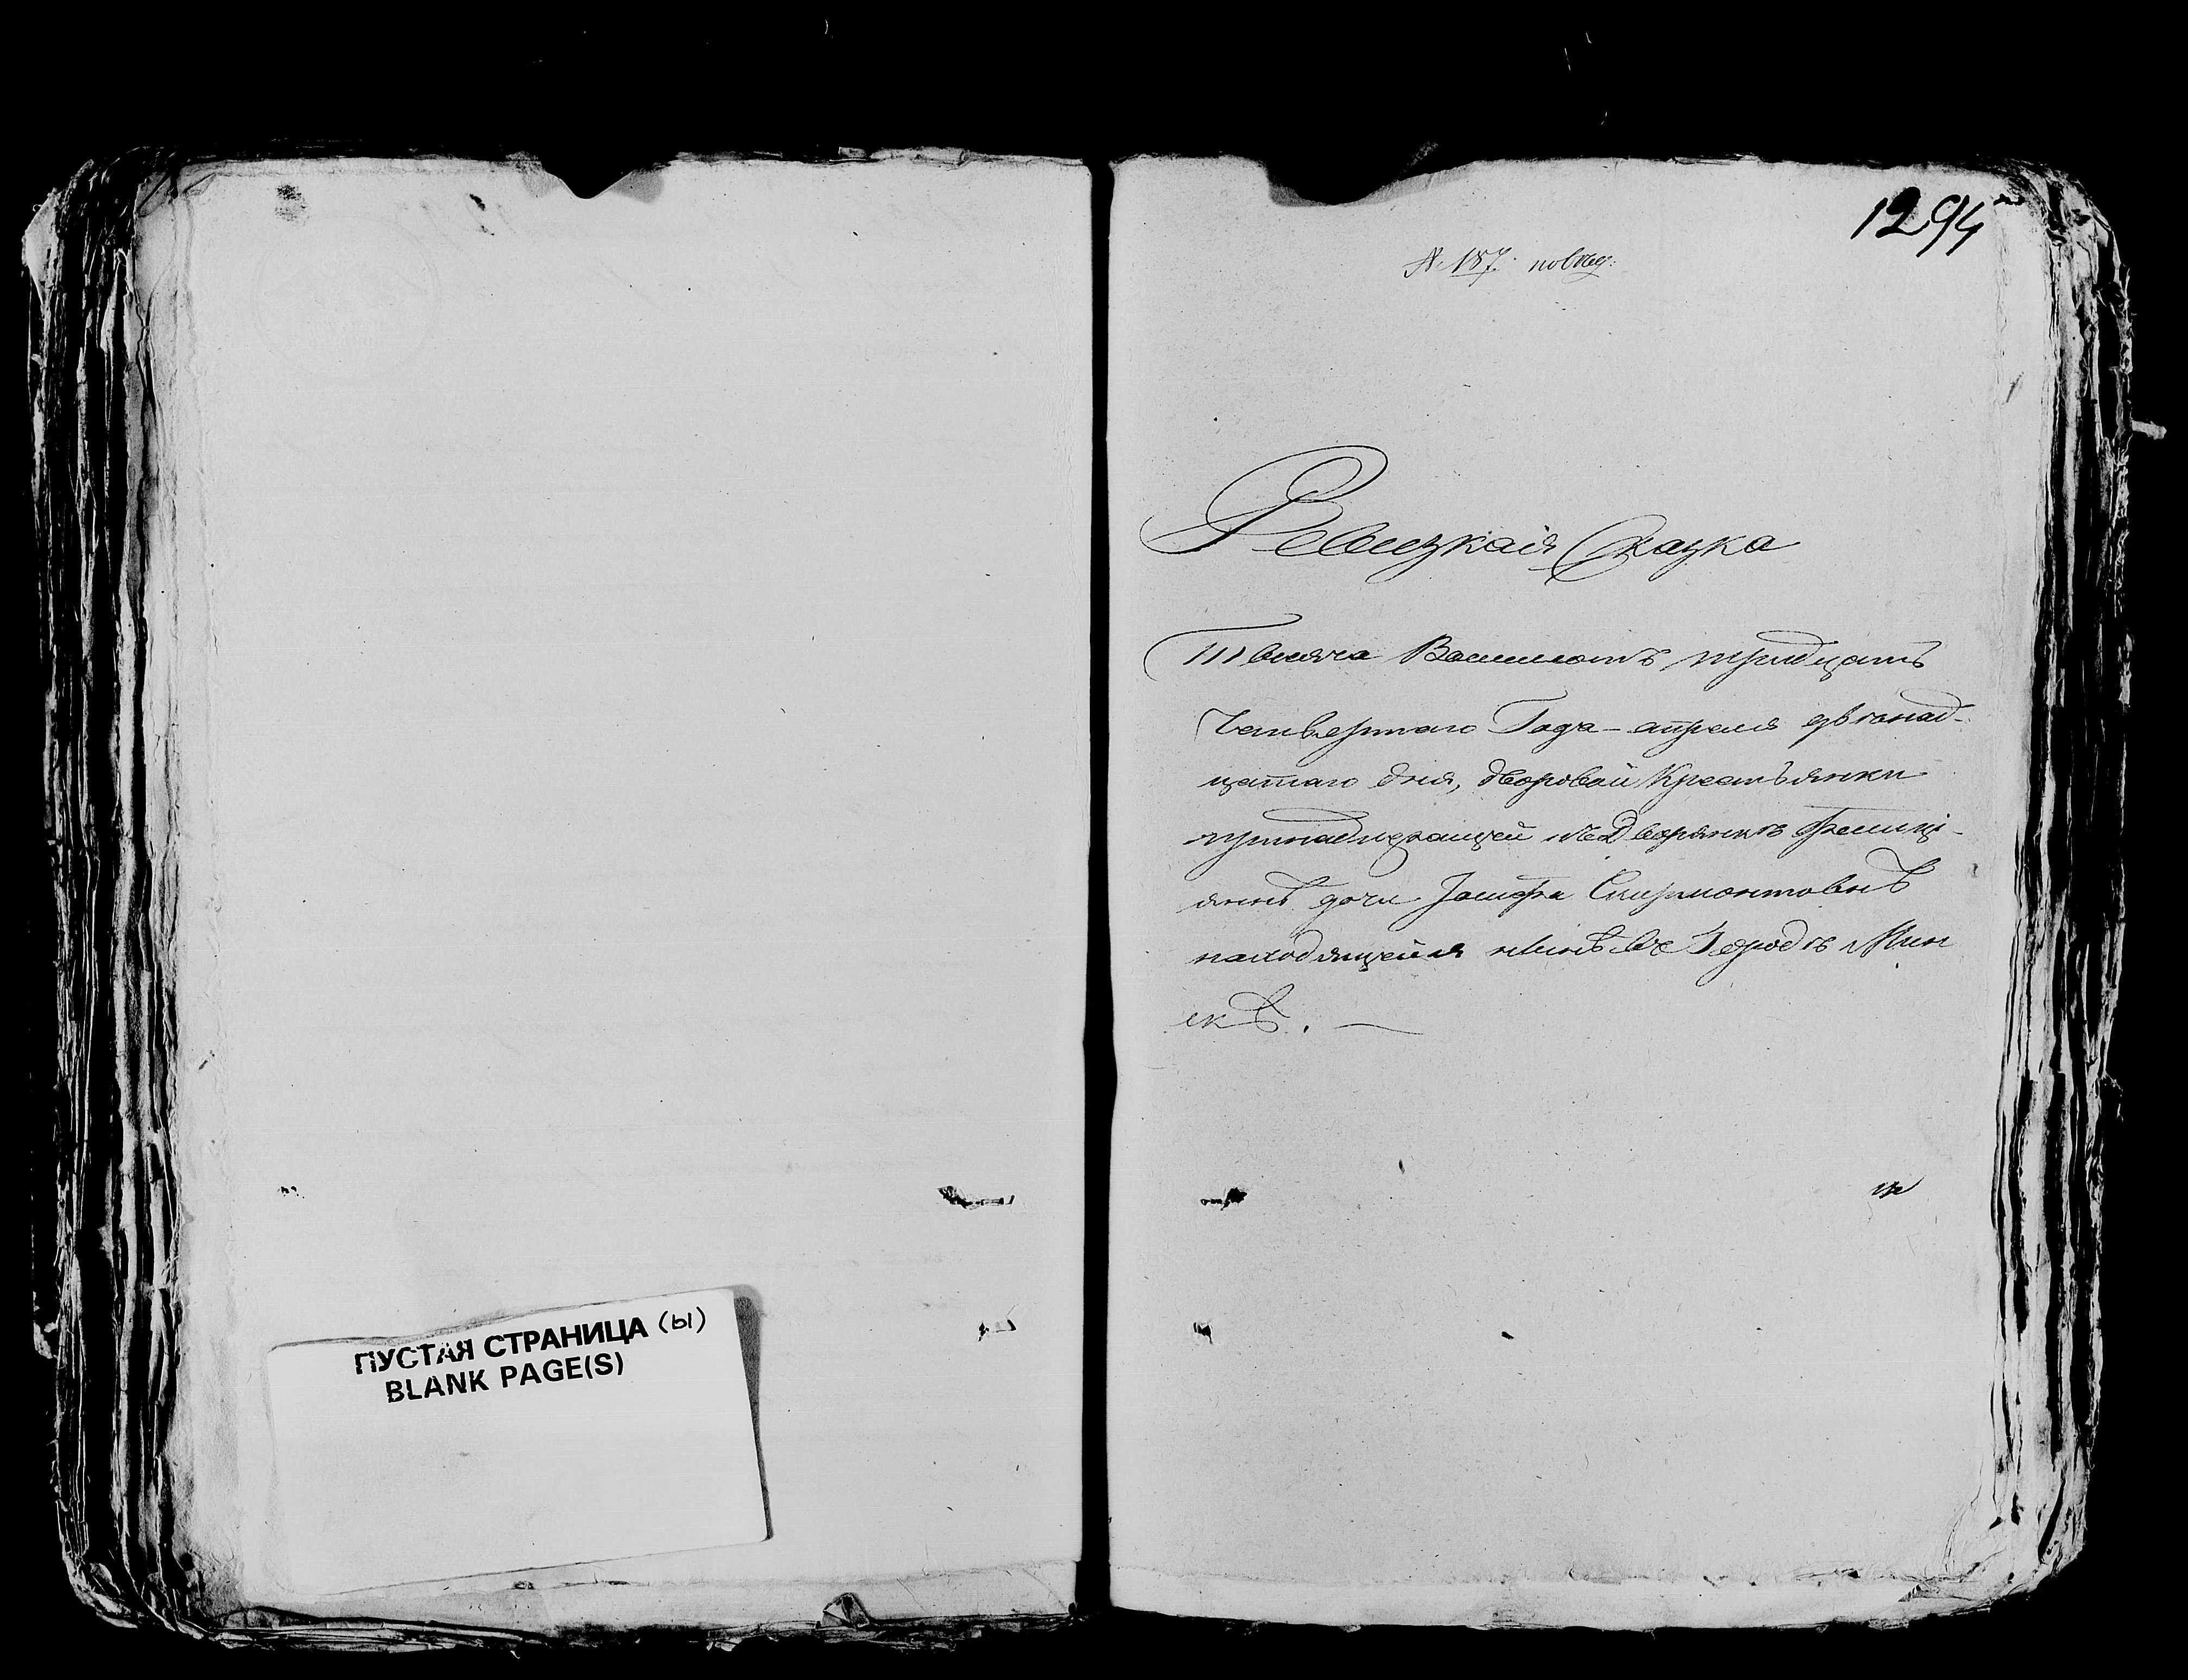 ПУСТАЯ СТРАНИЦА (ы)
BLANK PAGE(S)
1294
№ 187.
Ревизкаія Сказка
Тысяча Восемсотъ тридцать
Четвертаго Года - апреля двенад-
цатаго дня, дворовой Крестьянки
принадлежащей къ Дворянкѣ Фелици-
яннѣ дочи Іосифа Смирмонтовнѣ
находящейся нынѣ въ Городѣ Мин
скѣ. —